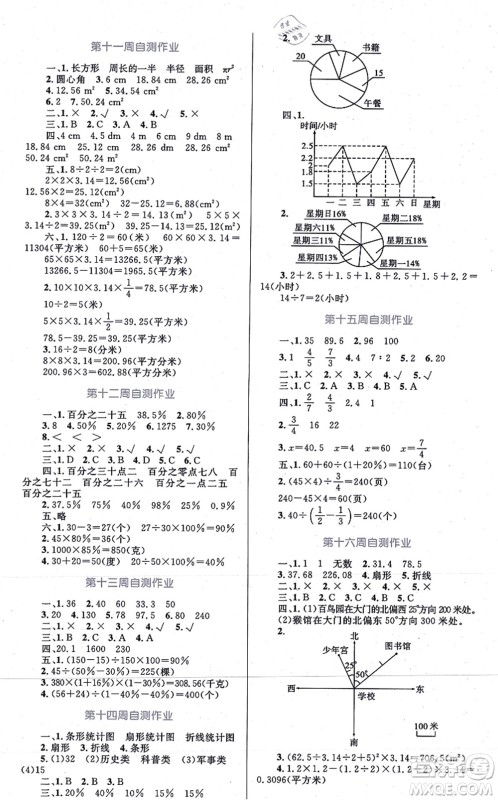 第十一周自测作业
一、1. 长方形 周长的一半 半径 面积 πr²
2. 圆心角 3. 6 cm 18.84 cm 28.26 cm²
4. 12.56 m² 5. 34.54 cm²
6. 2 7. 50.24 cm²
二、1. × 2. √ 3. √ 4. √ 5. ×
三、1. B 2. C 3. B 4. B
四、4 cm 4 m 5 dm 9 m 6 cm
18.84 cm 25.12 cm 28.26 m² 28.26 cm²
50.24 cm 50.24 cm²
五、1. 8÷2÷2=2(cm)
2×2×3.14=12.56(cm²)
12.56×2=25.12(cm²)
8×4=32(cm²) 32-25.12=6.88(cm²)
2. 3.14×3×3=28.26(m²) 5×5×
3.14÷2=39.25(m²) 39.25-14.13=25.12(m²)
六、1. 120÷2=60(米) 60×60×3.14=
11304(平方米) 60+5=65(米)
65×65×3.14=13266.5(平方米)
2. 10×10×3.14×1/4=78.5(平方米)
10÷2=5(米)
5×5×3.14×1/2=39.25(平方米)
78.5-39.25=39.25(平方米)
3. 16÷2=8(分米)
8×8×3.14=200.96(平方分米)
200.96×3=602.88(平方分米)
第十二周自测作业
一、1. 百分之二十五 38.5% 2. 40%
3. 8 4. 50% 5. 40% 6. 1275 7. 90%
8. < = >
二、1. × 2. × 3. √ 4. × 5. √
三、1. D 2. A 3. C 4. C 5. A
四、1. 百分之三十点二 百分之零点七八 百
分之七十二 百分之二十六 百分之一百五十二
百分之五十三
2. 37.5% 75% 40% 98% 25% 0.9%
五、略
六、1. 30-3=27(个) 27÷30=90%
2. 45×80%=36(个)
3. 1000×85%=850(克)
4. 60÷(60+30+20)≈54.5%
第十三周自测作业
一、1. 36 2. 40 3. 60 4. 30
二、1. B 2. A 3. C 4. B
三、1. × 2. × 3. √ 4. √
四、20.1 1600 2300
五、1. (150-15)÷150=90%
2. 45÷(1-80%)=225(棵)
3. 380×(1+16%)×(1-15%)=374.68(元)
4. (56+24)÷(1-60%)=200(个)
第十四周自测作业
一、1. 条形统计图 扇形统计图 折线统计图
2. 扇形 3. 扇形 4. 折线
5. (1)32 (2)历史类 科普类 (3)军事类
(4)15
二、1. × 2. × 3. √ 4. √ 5. √
三、1. B
2. 文具
书籍
20
15
午餐
四、1.
时间/小时
2.5
2.2
2
1.8
1.5
一 二 三 四 五 六 日 星期
2. 星期日16% 星期二18%
星期六14% 星期三11%
星期五11% 星期四18%
星期一14%
3. 2+2.5+1.5+1.8+2.5+1.5+2.2=
14(小时)
14÷7=2(小时)
第十五周自测作业
一、1. 35 89.6 2. 96 100
3. 1 4/5 7/3 4. 7∶2 5. 4 1/5
二、1. × 2. × 3. √ 4. √
三、1. B 2. C 3. A 4. A
2. 3/4 16 22
3. x=40.5 x=40 x=4 x=7/4
五、1. 60÷(60+40+60)=110(台)
2. (45×4)÷3/4=240(页)
240-(45×4)=60(页)
3. 40÷(1/2-1/3)=240(页)
第十六周自测作业
一、1. 1 无数 2. 10
3. 37.68 226.08 4. 扇形 5. 折线
二、1. × 2. × 3. √ 4. √
三、1. C 2. A 3. A 4. B
四、1. (1)百鸟园在大门的北偏西25°方向200米处。
(2)猴馆在大门的北偏东50°方向300米处。
2.
北
少年宫
图书馆
25°
50°
西
学校
东
南
100米
五、1. (62.5÷3.14÷2)²×3.14=706.5(m²)
0.3096(平方米)